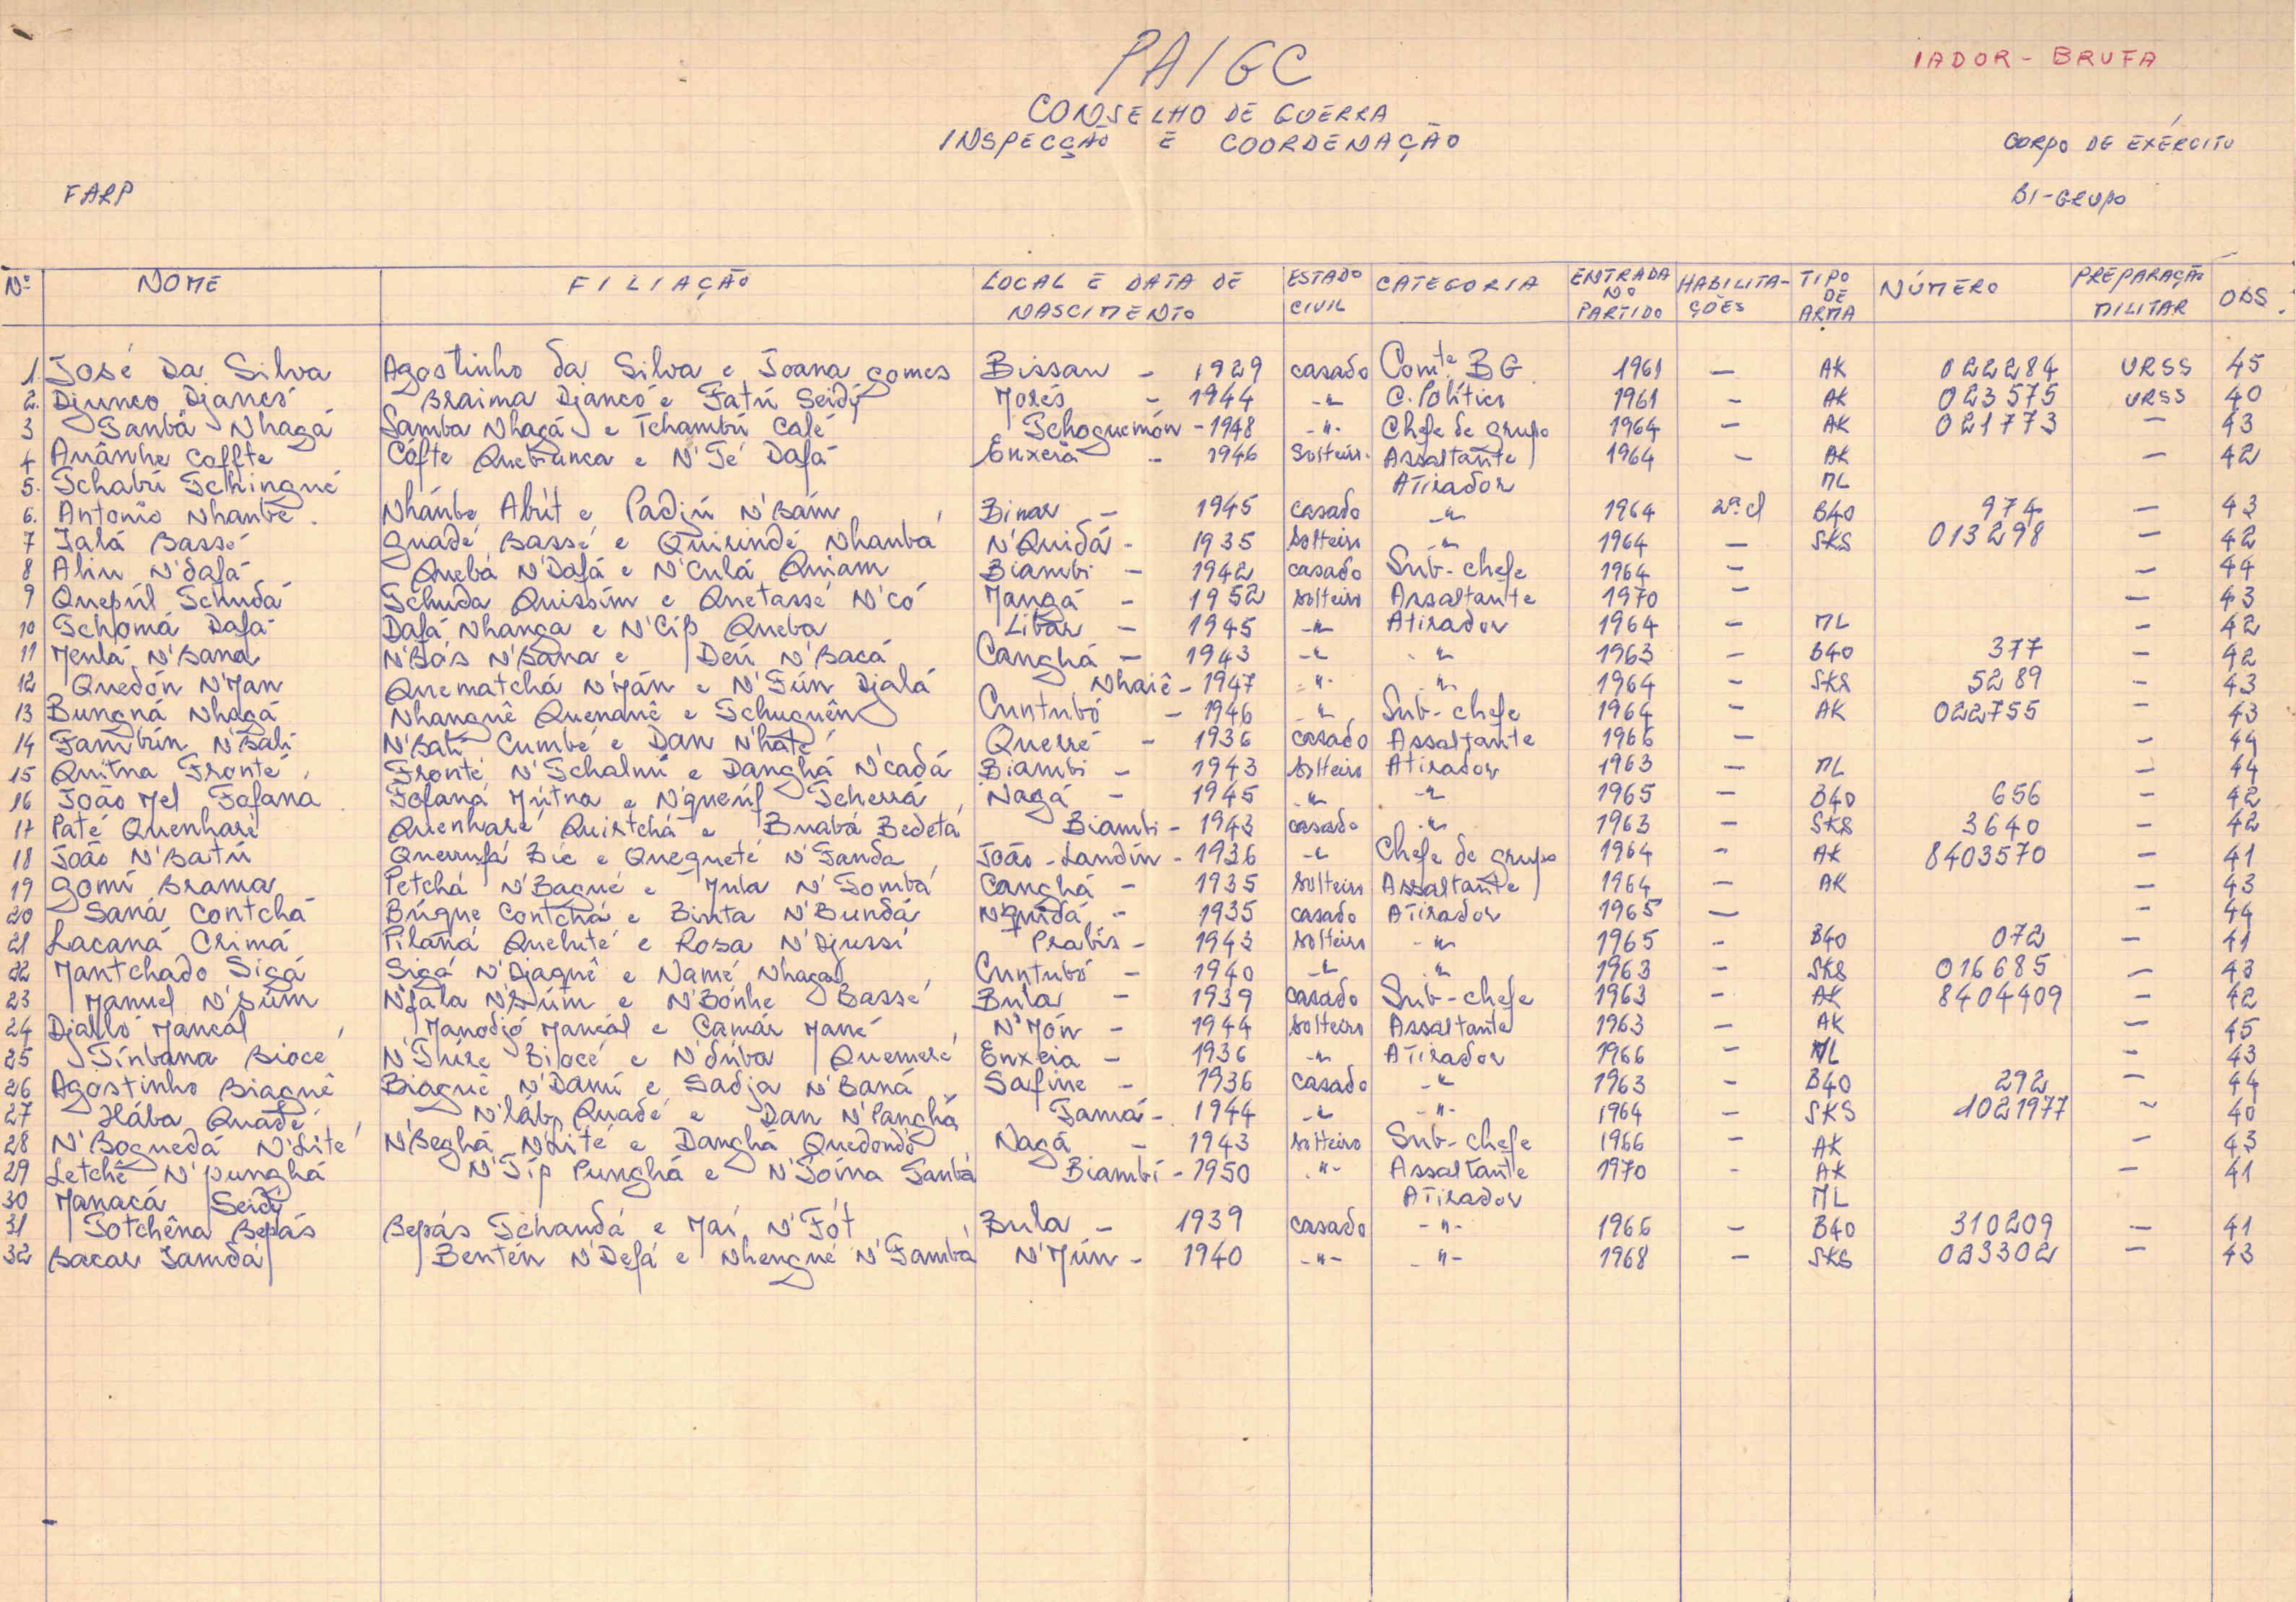 PAIGC
IADOR - BRUFA
CONSELHO DE GUERRA
INSPECÇÃO E COORDENAÇÃO
CORPO DE EXÉRCITO
FARP
BI-GRUPO
Nº NOME FILIAÇÃO LOCAL E DATA DE NASCIMENTO ESTADO CIVIL CATEGORIA ENTRADA NO PARTIDO HABILITAÇÕES TIPO DE ARMA NÚMERO PREPARAÇÃO MILITAR OBS.
1. José Da Silva Agostinho da Silva e Joana gomes Bissau - 1929 casado Comte. BG 1961 — AK 022284 URSS 45
2. Djunco Djancó Braima Djancó e Fatú Seidy Morés - 1944 -"- C. Político 1961 - AK 023575 URSS 40
3 Tambá Nhagá Samba Nhagá e Tchambú Calé Tchoguemón - 1948 -"- Chefe de grupo 1964 - AK 021773 - 43
4 Anânhe Coffte Cófte Quebunca e N'Té Dafá Enxeia - 1946 Solteiro Assaltante 1964 - AK - 42
5. Tchabú Tchingué Atirador ML
6. Antonio Nhambé Nhánbe Abút e Padjú N'Bám Binar - 1945 casado -"- 1964 2ª cl B40 974 - 43
7 Ialá Bassé Guadé Bassé e Quirindé Nhanba N'Quidá - 1935 solteiro -"- 1964 — SKS 013298 - 42
8 Aliu N'dafá Quebá N'Dafá e N'Culá Quiam Biambi - 1942 casado Sub-chefe 1964 - - 44
9 Quepúl Tchudá Tchuda Quissím e Quetassé N'có Mangá - 1952 solteiro Assaltante 1970 - - 43
10 Tchomá Dafá Dafá Nhanga e N'Cíp Queba Libár - 1945 -"- Atirador 1964 - ML - 42
11 Menlá N'Bana N'Bás N'Bana e Deú N'Bacá Canghá - 1943 -"- -"- 1963 - B40 377 - 42
12 Quedón N'Man Quematchá N'Mán e N'Tún Djalá Nhaiê - 1947 -"- -"- 1964 - SKS 5289 - 43
13 Bungná Nhagá Nhanguê Quenanê e Tchuguên Cuntubó - 1946 -"- Sub-chefe 1964 - AK 022755 - 43
14 Tambún N'Bali N'Bali Cumbé e Dan N'haté Querré - 1936 casado Assaltante 1966 - - 44
15 Quitna Fronté Fronté N'Tchalmú e Danghá N'cadá Biambi - 1943 solteiro Atirador 1963 - ML - 44
16 João Mel Fofana Fofaná Mútna e N'queúf Tcherrá Nagá - 1945 -"- -"- 1965 - B40 656 - 42
17 Paté Quenharé Quenharé Quistchá e Buabá Bedetá Biambi - 1943 casado -"- 1963 - SKS 3640 - 42
18 João N'Batú Querrufá Bié e Quegueté N'Tanda João-Landín - 1936 -"- Chefe de grupo 1964 - AK 8403570 - 41
19 Gomí Brama Petchá N'Bagué e Mula N'Tombá Canghá - 1935 solteiro Assaltante 1964 - AK - 43
20 Saná Contchá Búque Contchá e Binta N'Bundá N'quidá - 1935 casado Atirador 1965 — - 44
21 Lacaná Crimá Pilaná Queluté e Rosa N'Djussí Prabis - 1943 solteiro -"- 1965 - B40 072 - 41
22 Mantchado Sigá Sigá N'Djaquê e Namé Nhaga Cuntubó - 1940 -"- -"- 1963 - SKS 016685 - 43
23 Manuel N'Súm N'fala N'Súm e N'Bónhe Bassé Bula - 1939 casado Sub-chefe 1963 - AK 8404409 - 42
24 Djalló Mancál Manodjó Mancál e Camár Mané N'Món - 1944 solteiro Assaltante 1963 - AK - 45
25 Tínbana Bioce N'Túre Biocé e N'dúba Quemeré Enxeia - 1936 -"- Atirador 1966 - ML - 43
26 Agostinho Biaguê Biaguê N'Damí e Sadja N'Baná Safine - 1936 casado -"- 1963 - B40 292 - 44
27 Hába Quadé N'lába Quadé e Dan N'Panghá Tamá - 1944 -"- -"- 1964 - SKS 1021977 - 40
28 N'Boguedá N'Lité N'Beghá N'Lité e Danghá Quedondó Nagá - 1943 solteiro Sub-chefe 1966 - AK - 43
29 Letchê N'punghá N'Típ Punghá e N'Tóina Tambá Biambí - 1950 -"- Assaltante 1970 - AK - 41
30 Manacá Seidy Atirador ML
31 Totchêna Bepás Bepás Tchandá e Maí N'Tót Bula - 1939 casado -"- 1966 - B40 310209 - 41
32 Bacar Samdá Bentén N'Defá e Nhengué N'Tambá N'Mún - 1940 -"- -"- 1968 - SKS 033302 - 43